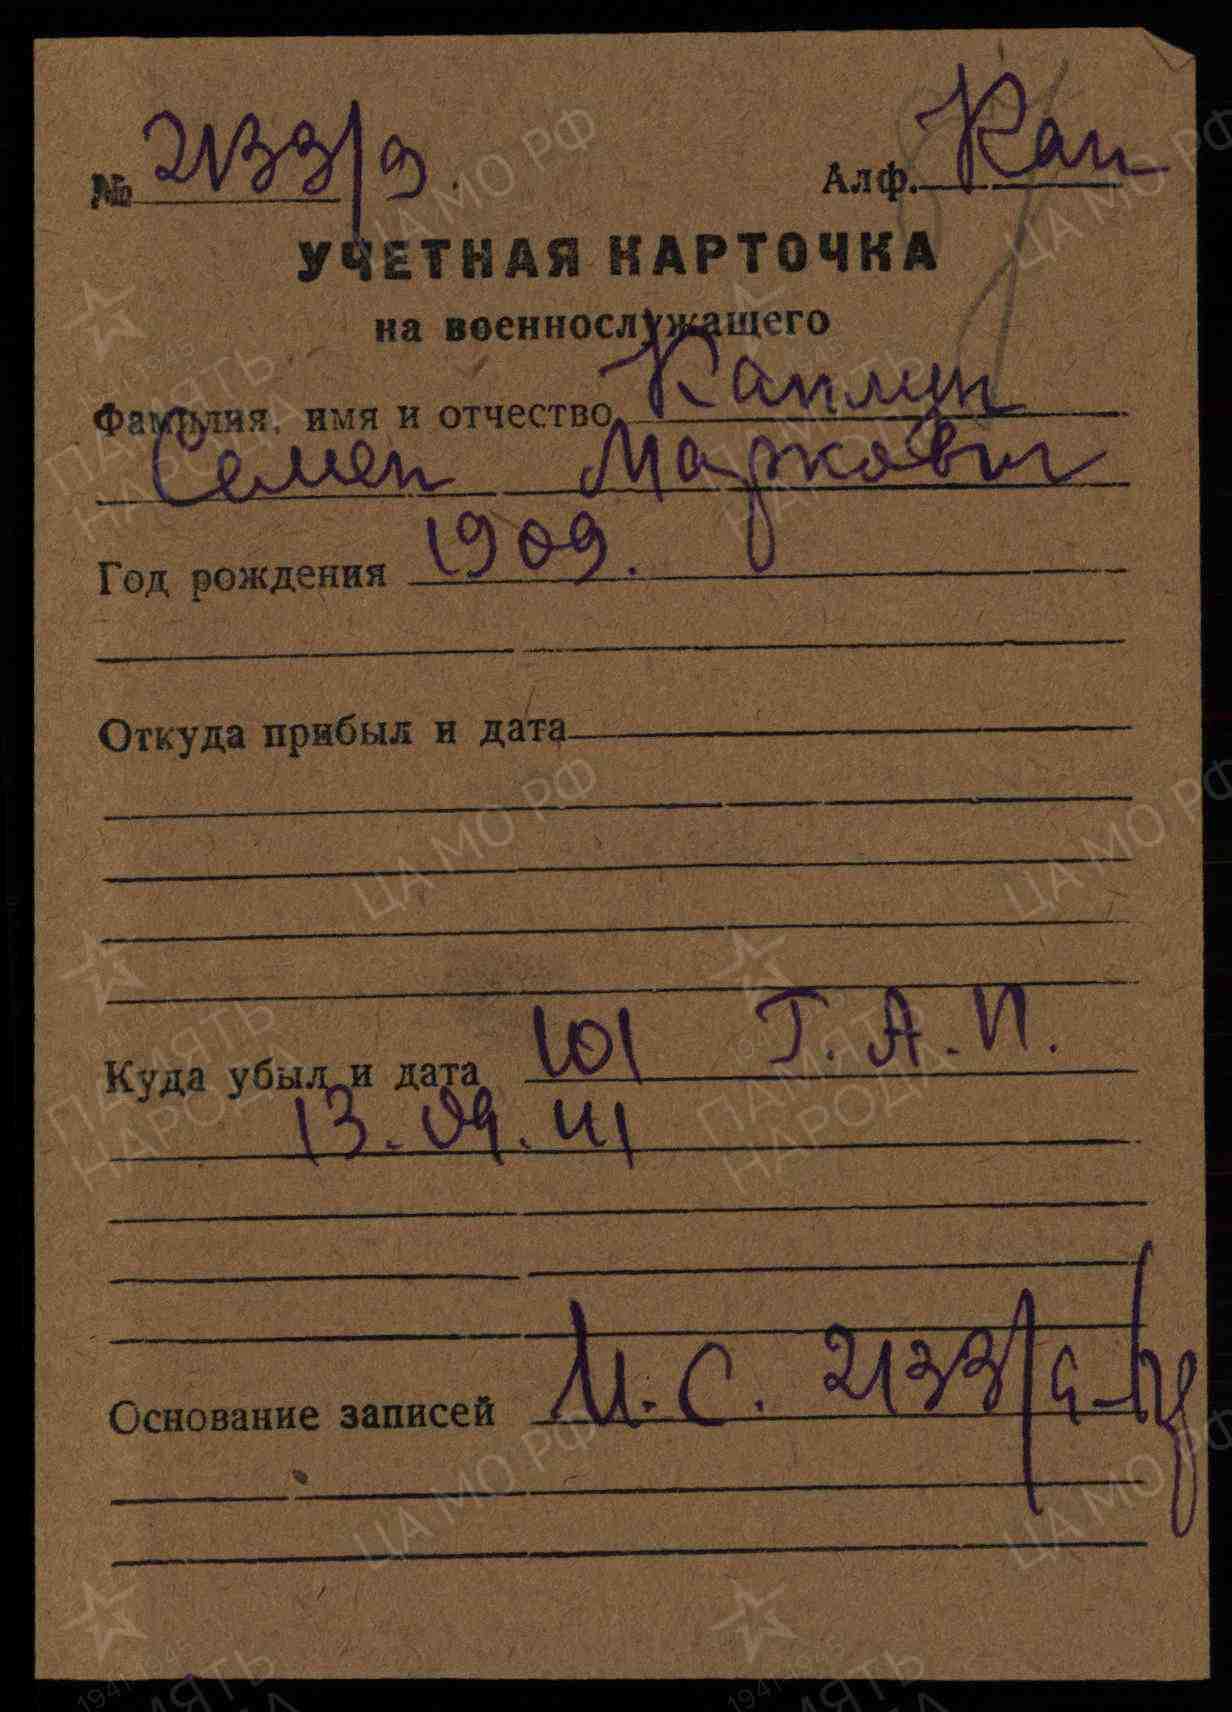 № 2133/9 Алф. Кап
УЧЕТНАЯ КАРТОЧКА
на военнослужащего
Фамилия, имя и отчество Каплун
Семен Маркович
Год рождения 1909.
Откуда прибыл и дата
Куда убыл и дата 101 Г.А.П.
13.09.41
Основание записей И.С. 2133/9
ЦА МО РФ
ПАМЯТЬ НАРОДА
1941-1945